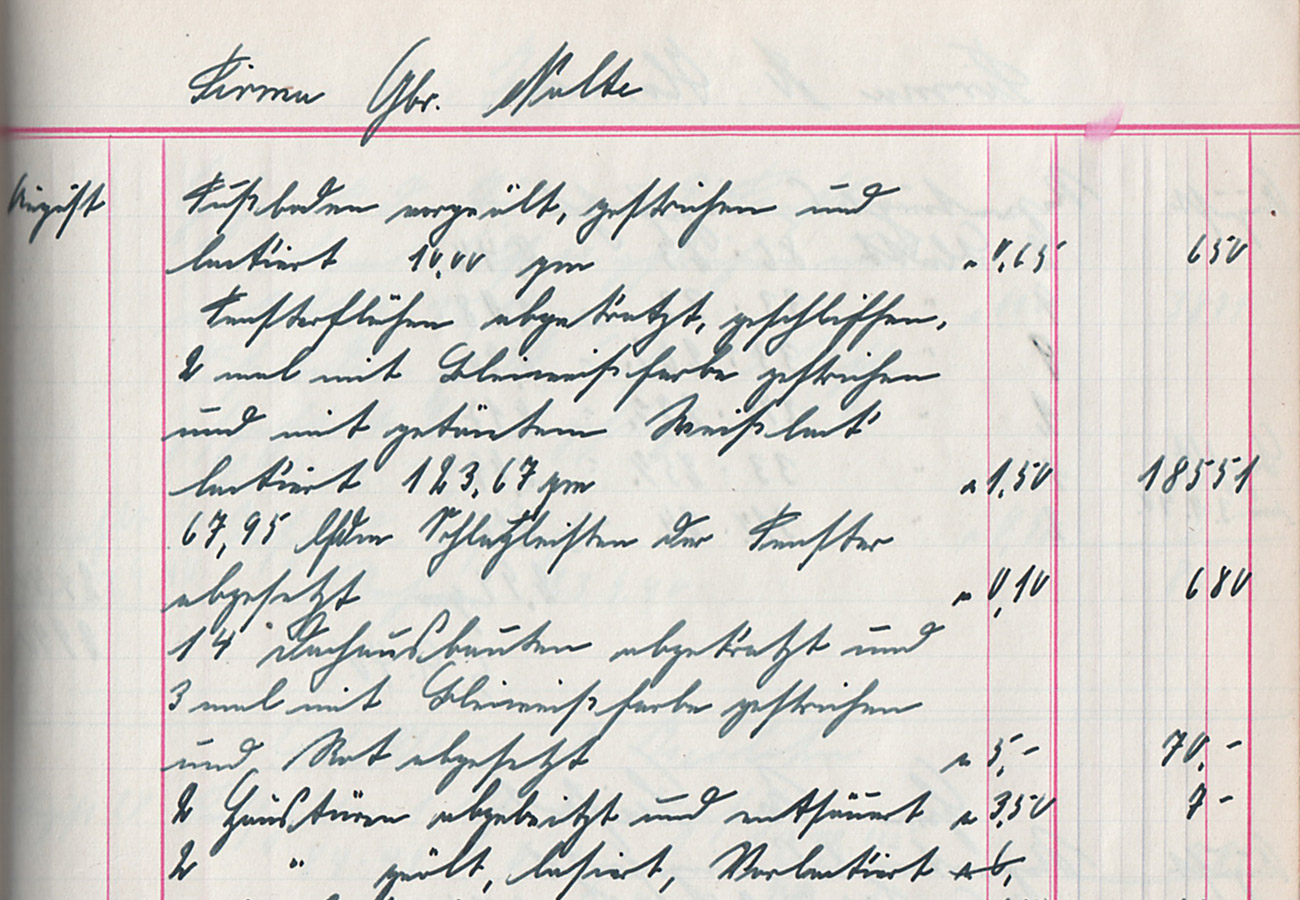 Firma Gbr. Nolte
August Fußboden vorgeölt, gestrichen und
lackiert 10,00 qm a 0,65 6 50
Fensterflächen abgekratzt, geschliffen,
2 mal mit Bleiweisfarbe gestrichen
und mit getöntem Weißlack
lackiert 123,67 qm a 1,50 185 51
67,95 lfdm Schlagleisten der Fenster
abgesetzt a 0,10 6 80
14 Dachausbauten abgekratzt und
3 mal mit Bleiweisfarbe gestrichen
und Rot abgesetzt a 5,- 70,-
2 Haustüren abgebeitzt und entsäuert a 3,50 7 -
2 " geölt, lasiert, Vorlackiert a 6,